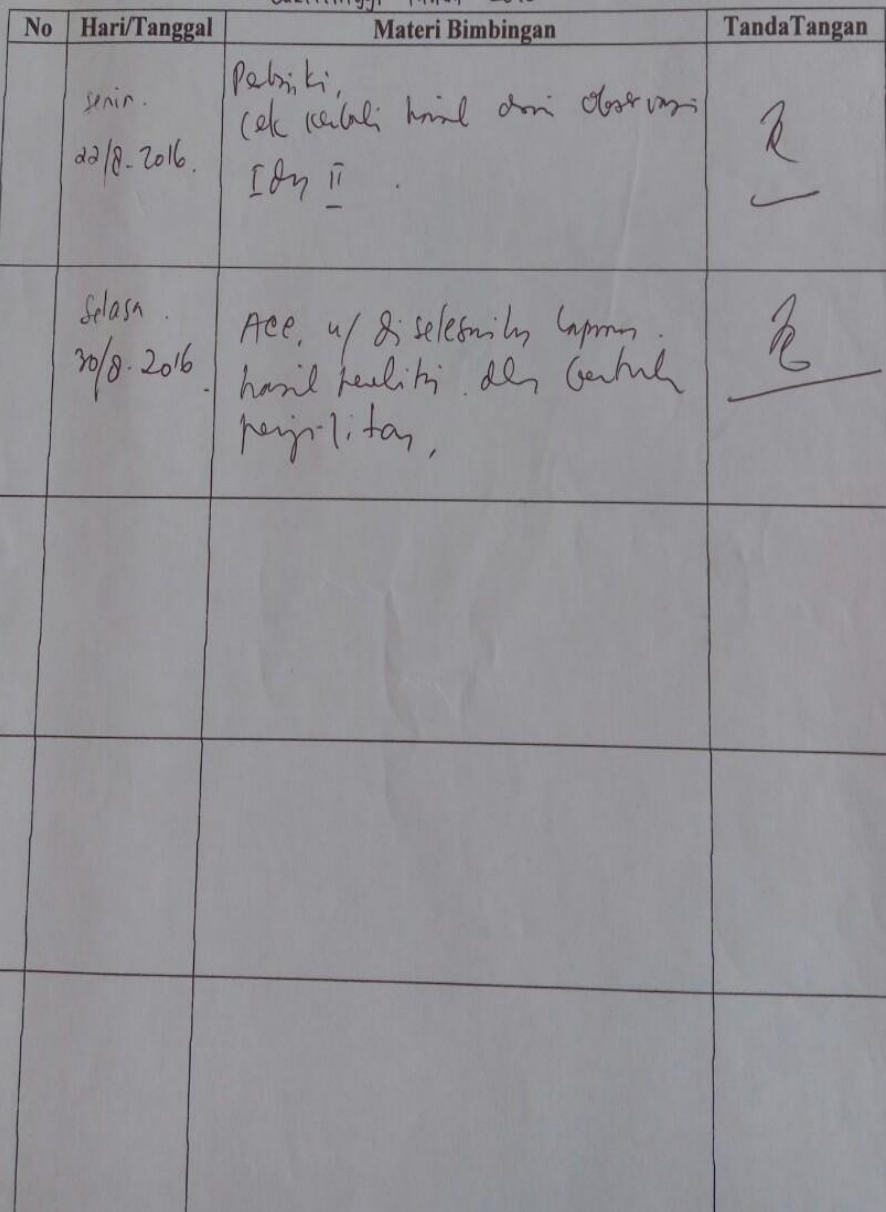 No Hari/Tanggal Materi Bimbingan TandaTangan
Senin.
22/8-2016.
Perbaiki,
Cek kembali hasil dari observasi
I dn II.
Selasa.
30/8-2016.
Acc, u/ diselesaikn laporan.
hasil peneliti. dlm bentuk